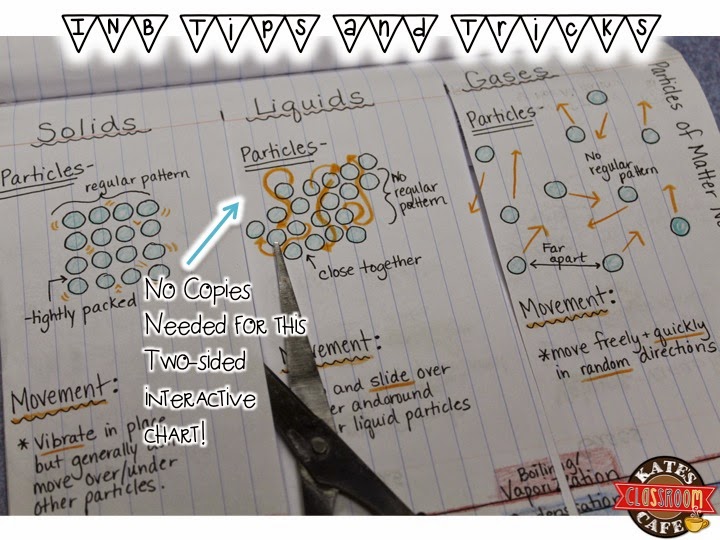 INB Tips and Tricks
Solids
Particles-
regular pattern
-tightly packed
Movement:
* Vibrate in place
but generally
move over/under
other particles.
Liquids
Particles-
No
regular
pattern
close together
and slide over
and around
liquid particles
Boiling/
Vaporization
Gases
Particles-
No
regular
pattern
Far
apart
Movement:
*move freely + quickly
in random directions
Particles of Matter
No Copies
Needed for this
Two-sided
interactive
chart!
KATE'S
CLASSROOM
CAFE